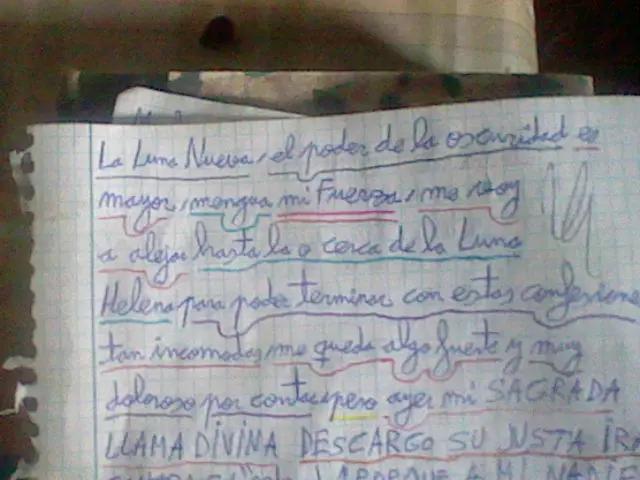 La Luna Nueva, el poder de la oscuridad es
mayor, mengua mi Fuerza, me voy
a alejar hasta la o cerca de la Luna
Helena para poder terminar con estas confesione
tan incomodas, me queda algo fuerte y muy
doloroso por contar, pero ayer mi SAGRADA
LLAMA DIVINA DESCARGO SU JUSTA IRA
A MI NADIE